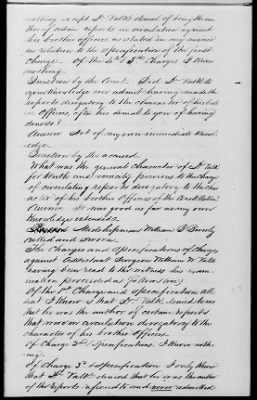 nothing except Dr Talks denial of being the au-
thor of certain reports in circulation against
his brother officers, as stated in my answer
in relation to the specification of the first
Charge. Of the 4th & 5th Charges I know
nothing.
Question by the Court. Did Dr Talk to
your knowledge ever admit having made the
reports derogatory to the character of his bro-
Officers, after his denial to you of having
done so?
Answer Not of my own immediate know-
ledge.
Question by the accused.
What was the general character of Dr Talk
for truth and veracity previous to the charge
of circulating reports derogatory to the char-
acter of his brother officers of the
Answer It was good as far as my own
knowledge extended.
Midshipman William
called and sworn.
The Charges and Specifications of Charges
against Assistant Surgeon William W Talk
having been read to the witness his exam-
ination proceeded as follows:
Of the 1st Charge and specification all
that I know is that Dr Talk denied to me
that he was the author of certain reports
that were in circulation derogatory to the
character of his brother officers.
Of Charge 2nd & specifications. I know noth-
ing.
Of Charge 3d & specification I only know
that Dr Talk denied that he was the author
of the reports referred to and never admitted